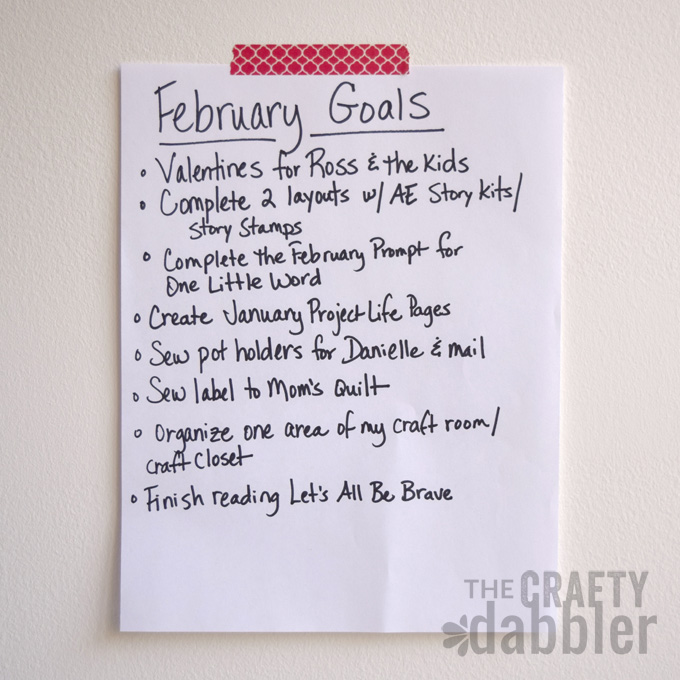 February Goals
• Valentines for Ross & the Kids
• Complete 2 layouts w/ AE Story Kits/
Story Stamps
• Complete the February Prompt for
One Little Word
• Create January Project Life Pages
• Sew pot holders for Danielle & mail
• Sew label to Mom's Quilt
• Organize one area of my craft room/
craft closet
• Finish reading Let's All Be Brave
THE CRAFTY
dabbler